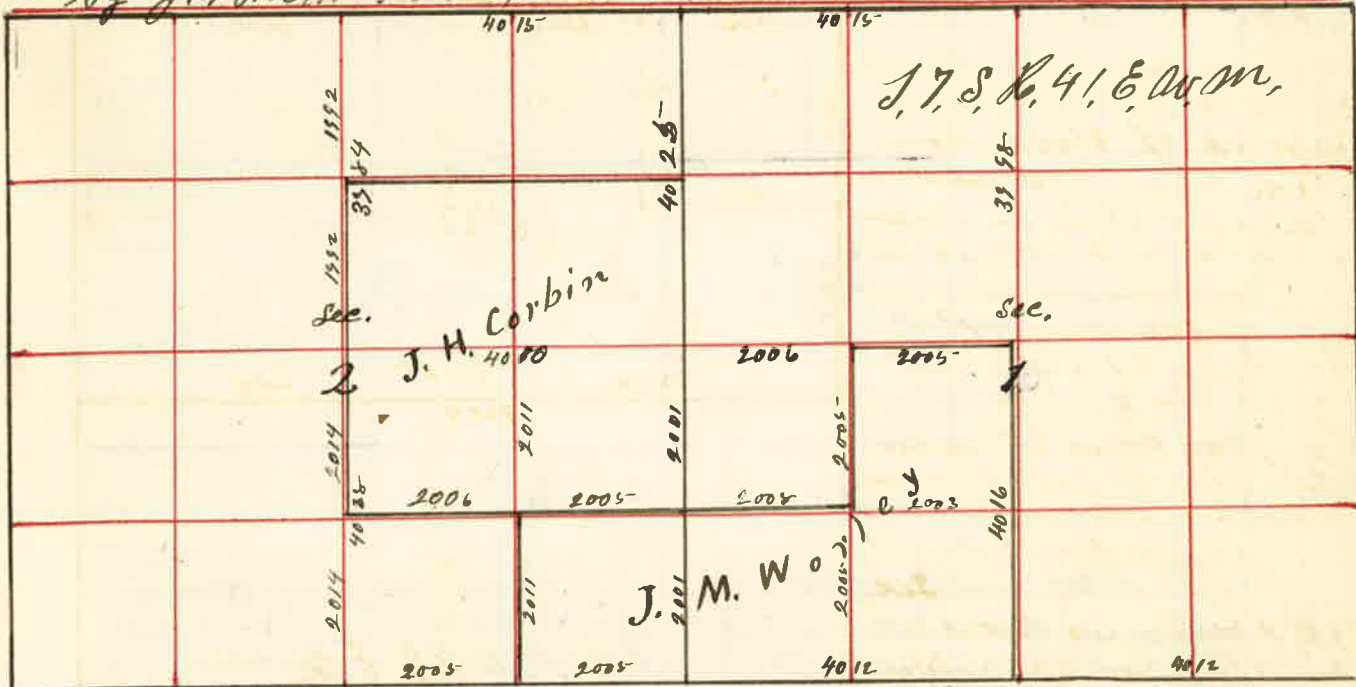 40 15 40 15
T. 7. S. R. 41. E. W. M.
1992
39 84
40 25
39 98
1992
Sec.
J. H. Corbin
40 10
2006
2005
Sec.
2
1
2014
2011
2001
2005
40 28
2006
2005
2005
2003
40 16
2014
2011
2001
J. M. Wooley
2005
2005
40 12
40 12